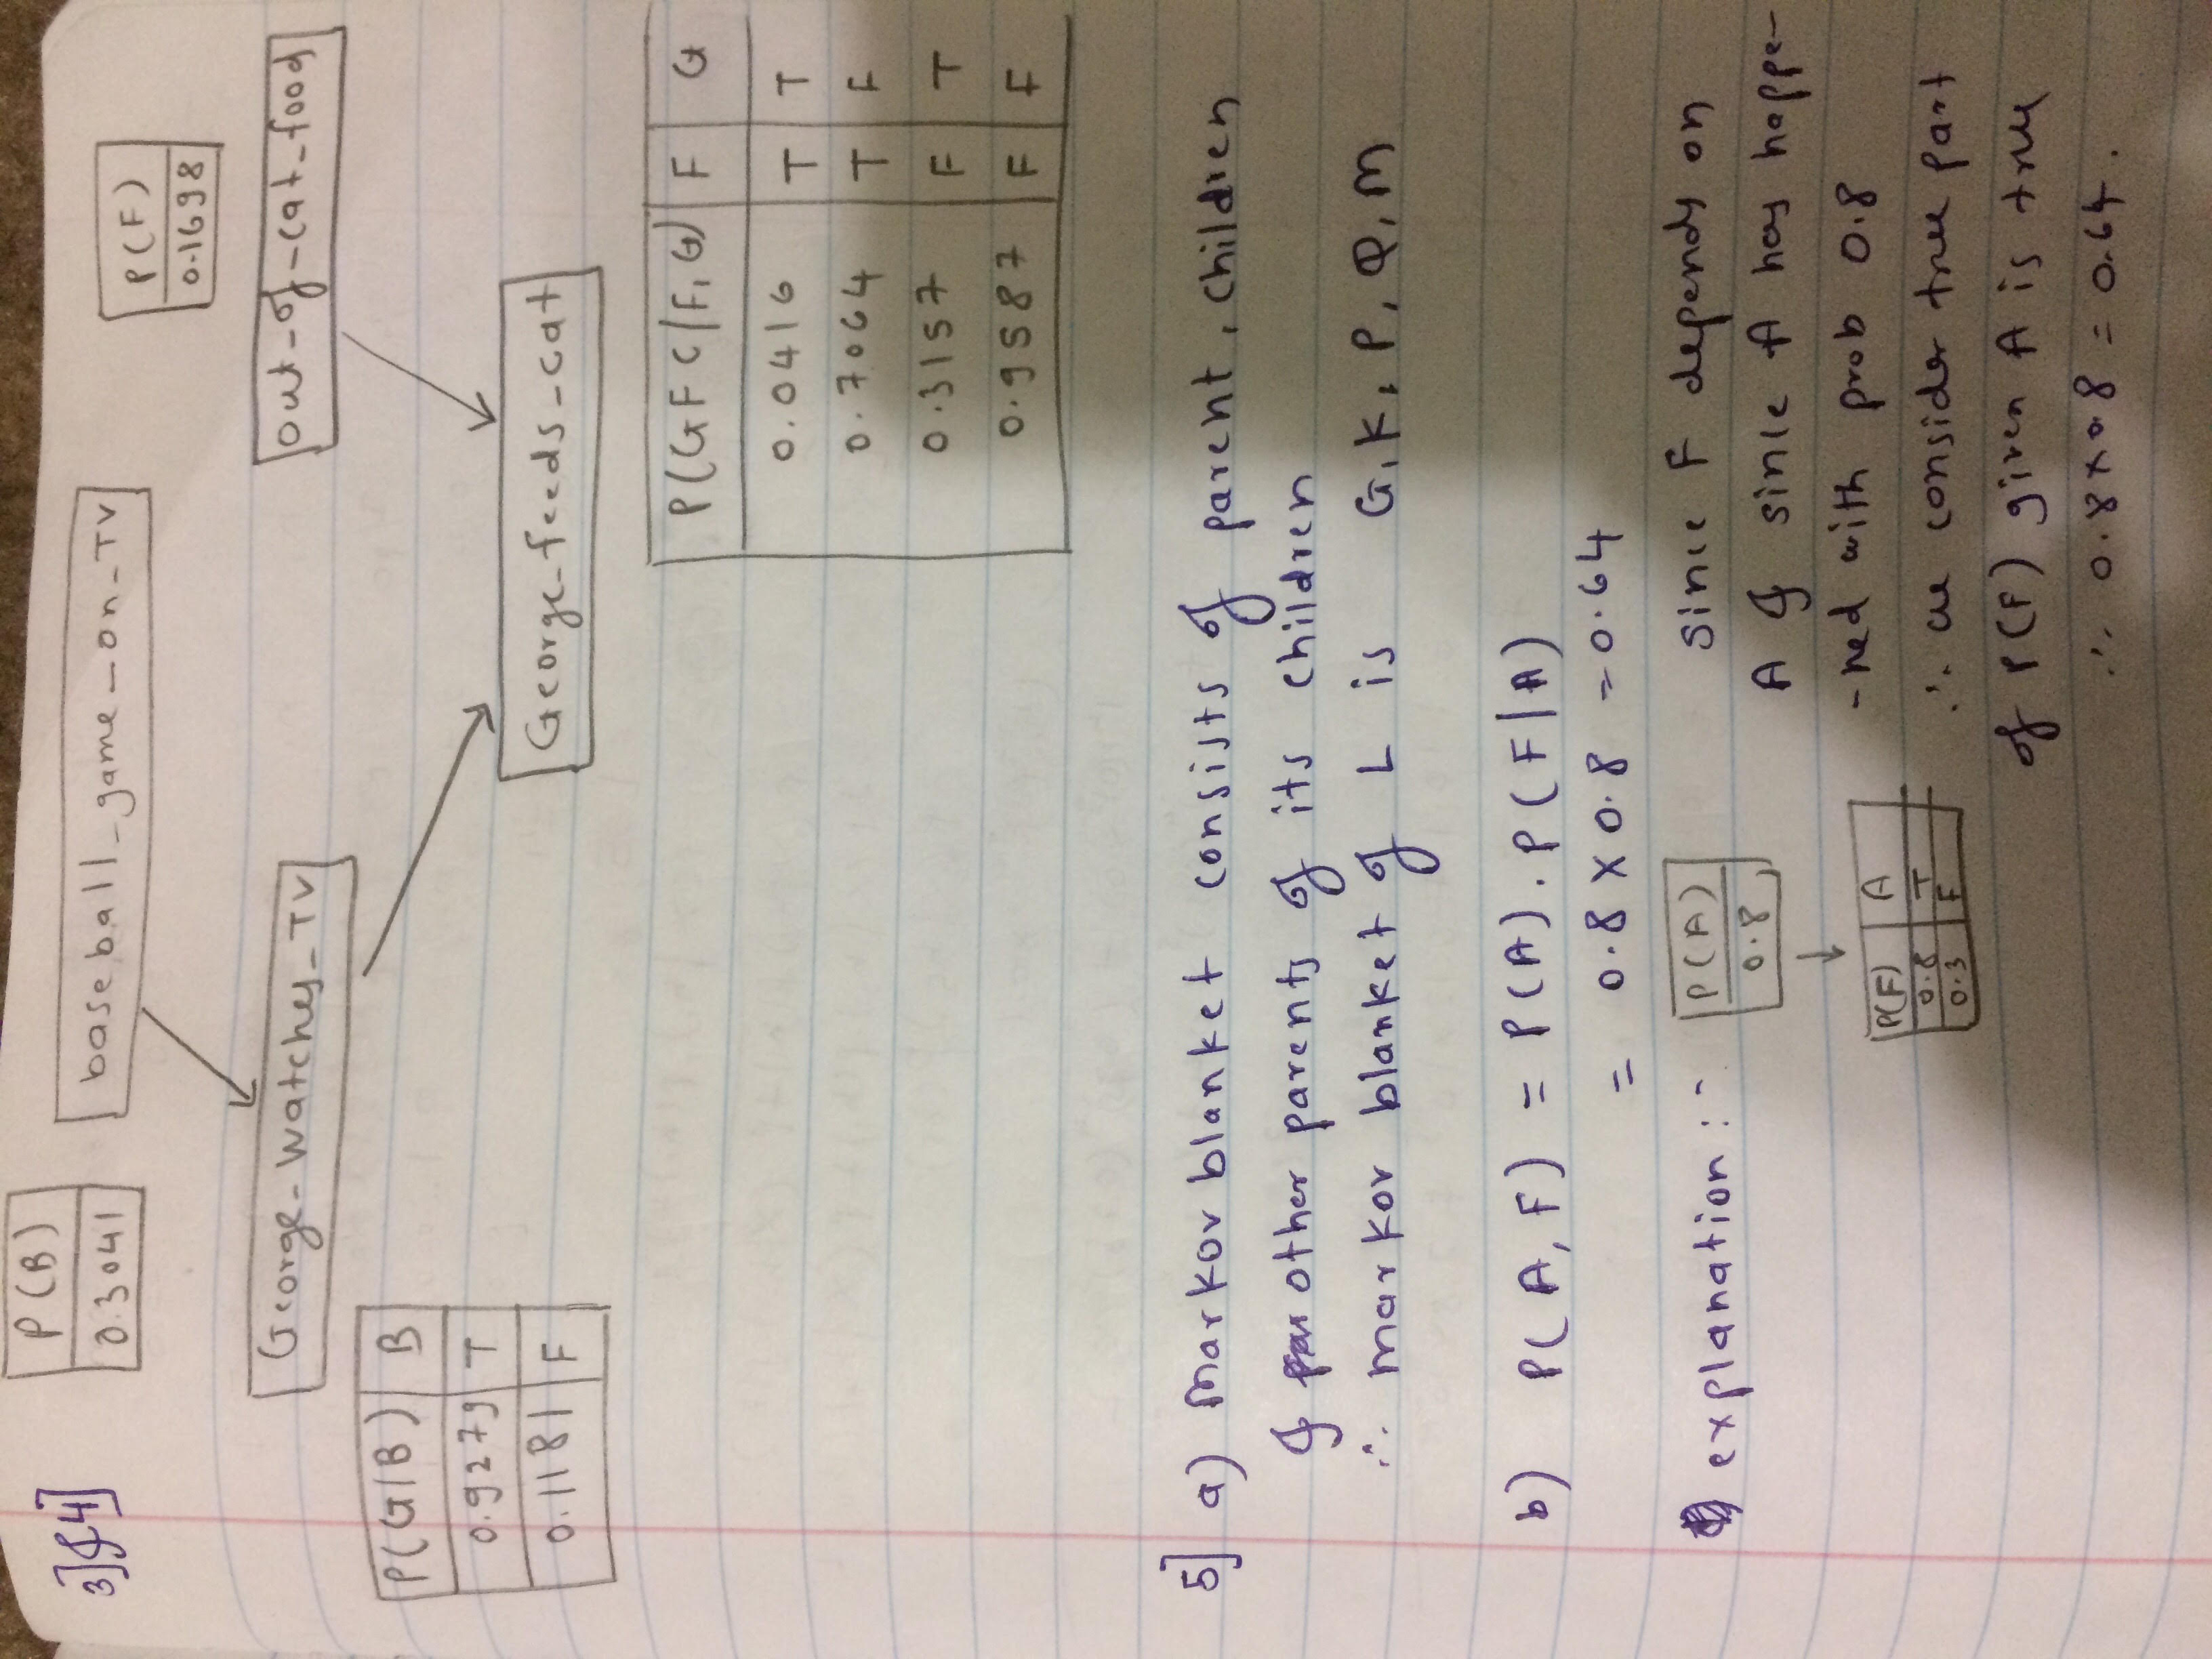 3] & 4]
P(B)
0.3041
baseball_game_on_TV
P(F)
0.1698
George-watches_TV
out_of_cat_food
P(G|B) B
0.9279 T
0.1181 F
George_feeds_cat
P(GFC|F,G) F G
0.0416 T T
0.7064 T F
0.3157 F T
0.9587 F F
5] a) Markov blanket consists of parent, children
& other parents of its children
∴ markov blanket of L is G, K, P, Q, M
b) P(A, F) = P(A). P(F|A)
= 0.8 X 0.8 = 0.64
explanation:-
P(A)
0.8
P(F) A
0.8 T
0.3 F
Since F depends on
A & since A has happe-
-ned with prob 0.8
∴ we consider true part
of P(F) given A is true
∴ 0.8 x 0.8 = 0.64.